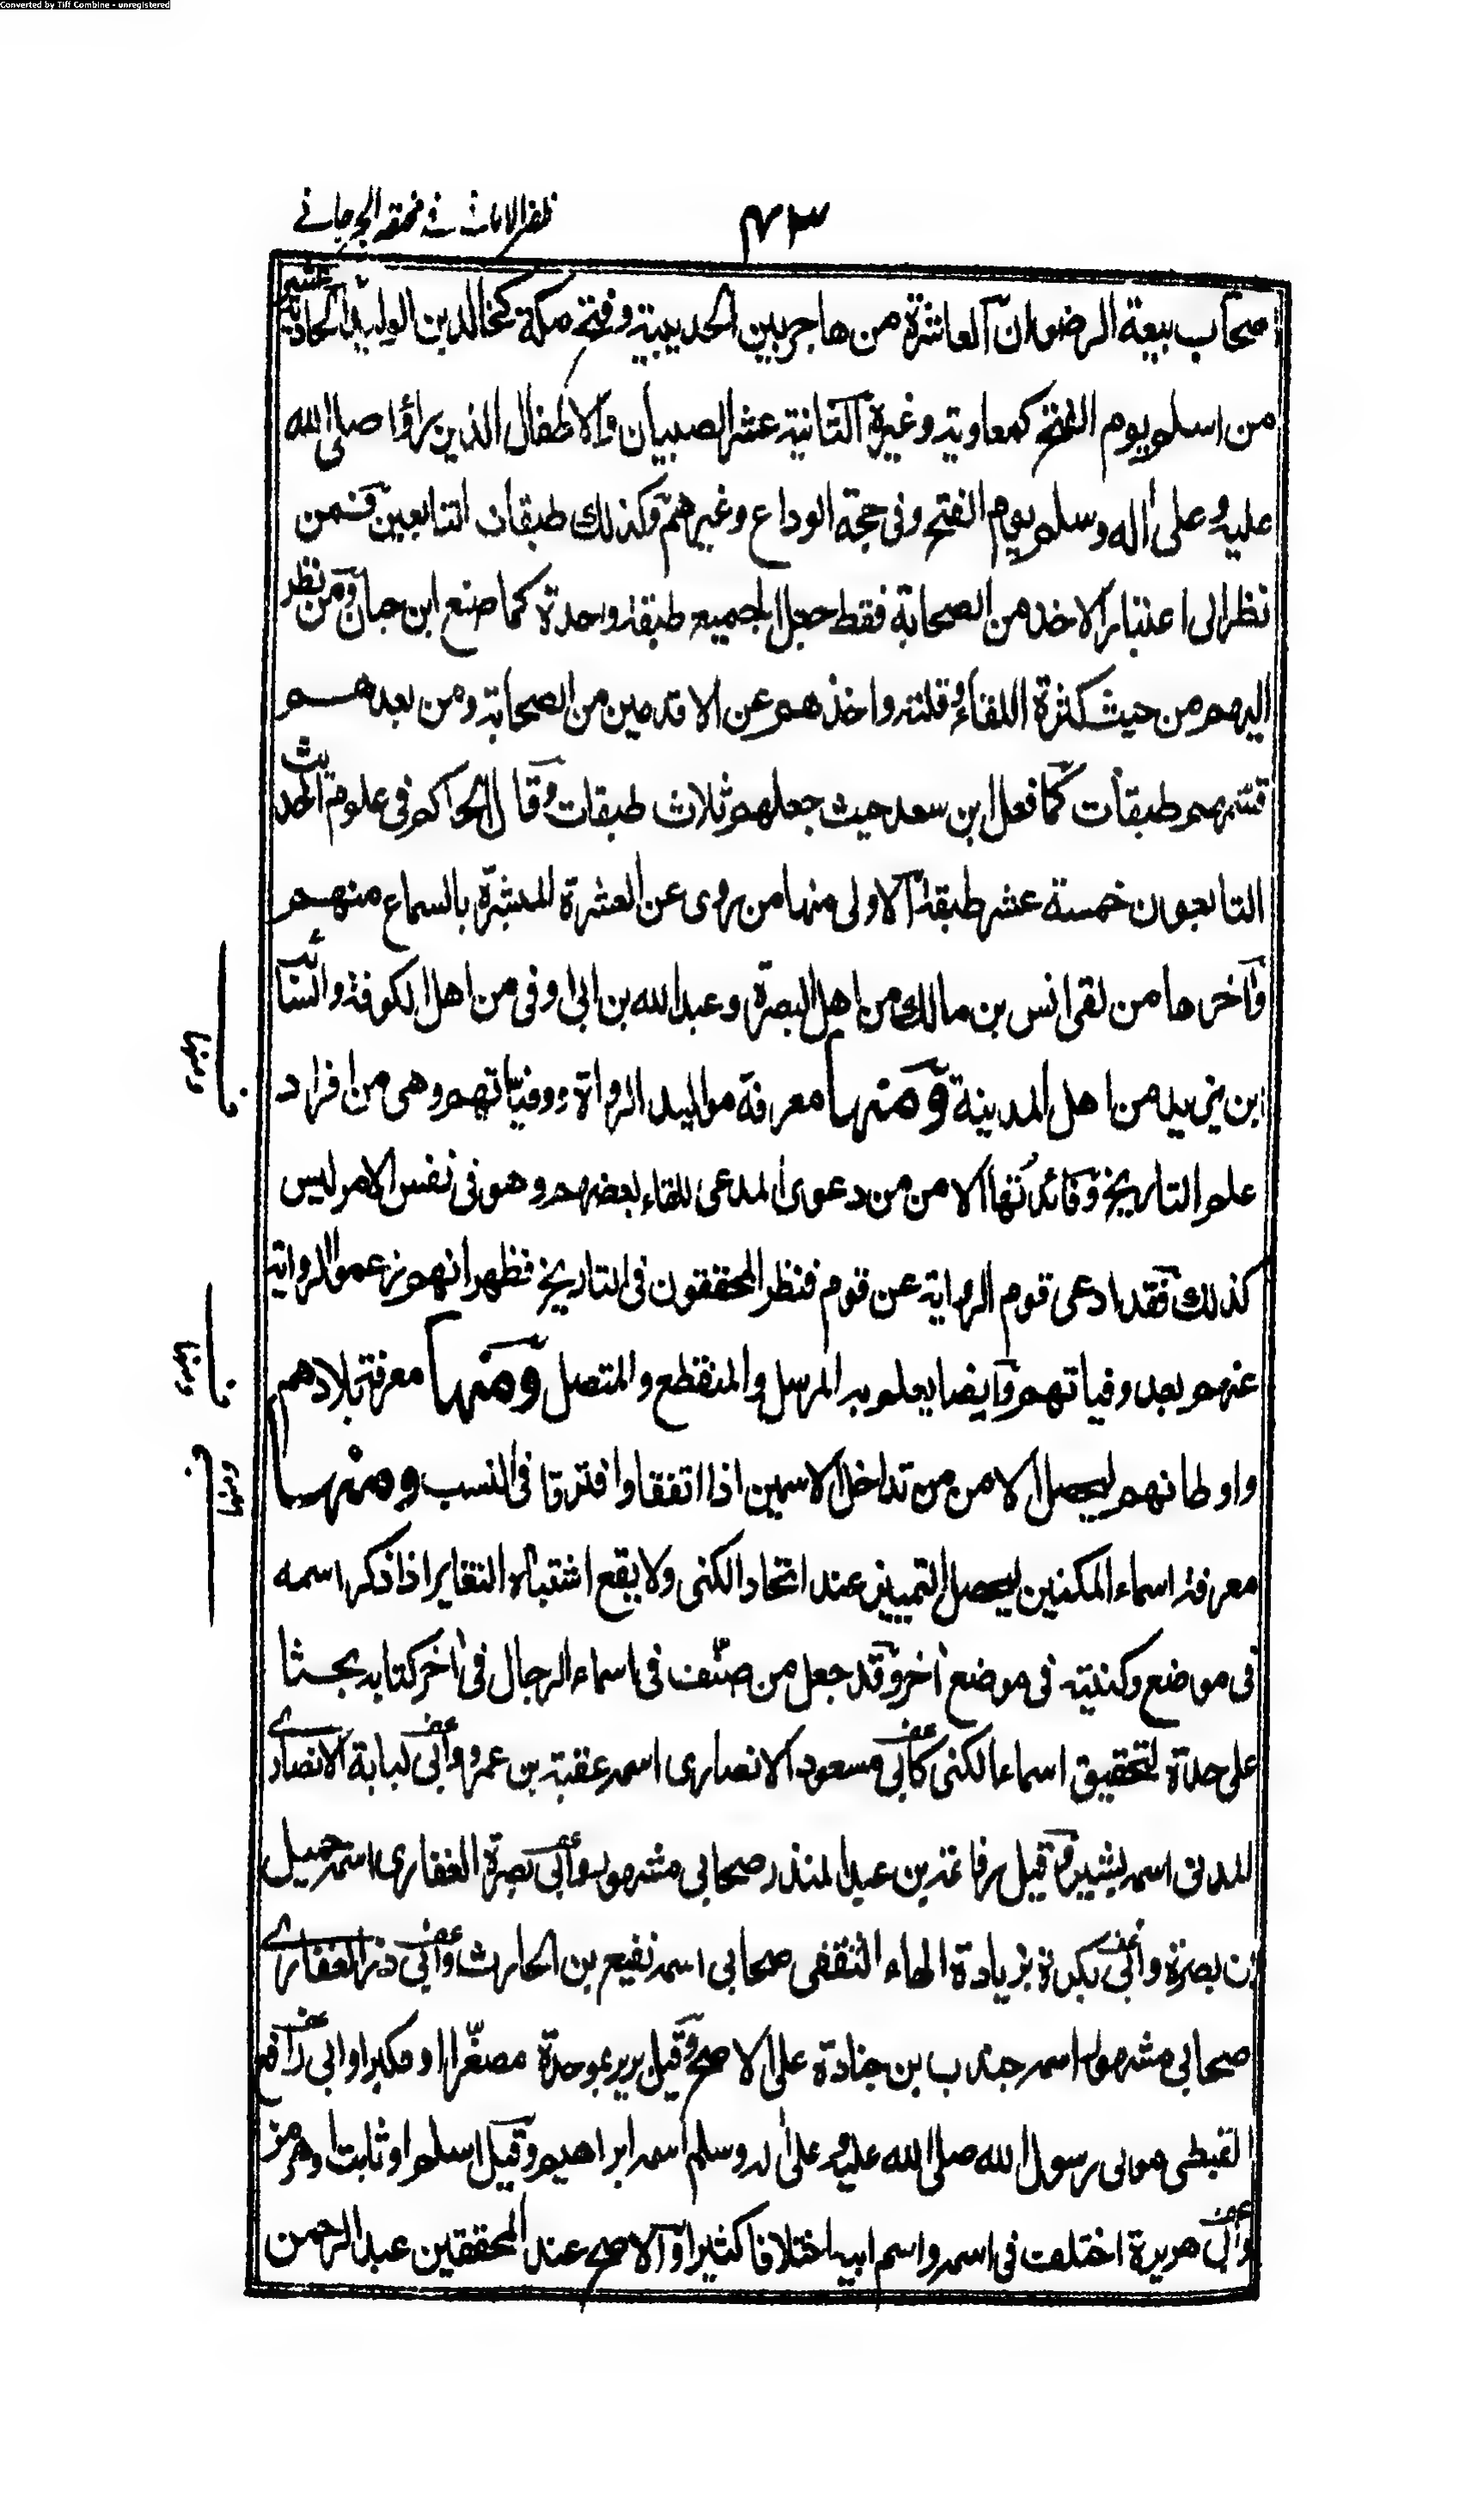 Converted by Tiff Combine - unregistered
ظفر الامانی فی مختصر الجرجانی
٧٣
صحاب بيعة الرضوان العاشرة من هاجر بين الحديبية وفتح مكة كخالد بن الوليد الحادية عشر
من اسلم يوم الفتح كمعاوية وغيره الثانية عشر الصبيان والاطفال الذين راؤا صلى الله
عليه وعلى اله وسلم يوم الفتح وفى حجة الوداع وغيرهم وكذلك طبقات التابعين فمن
نظر الى اعتبار الاخذ من الصحابة فقط جعل الجميع طبقة واحدة كما صنع ابن حبان ومن نظر
اليهم من حيث كثرة اللقاء وقلته واخذهم عن الاقدمين من الصحابة ومن بعدهم
قسمهم طبقات كما فعل ابن سعد حيث جعلهم ثلاث طبقات وقال الحاكم فى علوم الحديث
التابعون خمسة عشر طبقة الاولى منها من روى عن العشرة المبشرة بالسماع منهم
وآخرها من لقى انس بن مالك من اهل البصرة وعبد الله بن ابى اوفى من اهل الكوفة والسائب
ابن يزيد من اهل المدينة ومنها معرفة مواليد الرواة ووفياتهم وهى من افراد
علم التاريخ وفائدتها الامن من دعوى المدعى للقاء بعضهم وهو فى نفس الامر ليس
كذلك فقد ادعى قوم الرواية عن قوم فنظر المحققون فى التاريخ فظهر انهم زعموا الرواية
عنهم بعد وفياتهم وايضا يعلم به المرسل والمنقطع والمتصل ومنها معرفة بلادهم
واوطانهم ليحصل الامن من تداخل الاسمين اذا اتفقا وافترقا فى النسب ومنها
معرفة اسماء المكنين ليحصل التمييز عند اتحاد الكنى ولا يقع اشتباه التغاير اذا ذكر اسمه
فى موضع وكنيته فى موضع اخر وقد جعل من صنف فى اسماء الرجال فى اخر كتابه بحثا
على حدة لتحقيق اسماء الكنى كابى مسعود الانصارى اسمه عقبة بن عمرو وابى لبابة الانصارى
المدنى اسمه بشير وقيل رفاعة بن عبد المنذر صحابى مشهور وابى بصرة الغفارى اسمه حميل
بن بصرة وابى بكرة بزيادة الهاء الثقفى صحابى اسمه نفيع بن الحارث وابى ذر الغفارى
صحابى مشهور اسمه جندب بن جنادة على الاصح وقيل برير بموحدة مصغرا او مكبرا وابى رافع
القبطى مولى رسول الله صلى الله عليه وعلى اله وسلم اسمه ابراهيم وقيل اسلم او ثابت او هرمز
وابى هريرة اختلف فى اسمه واسم ابيه اختلافا كثيرا والاصح عند المحققين عبد الرحمن